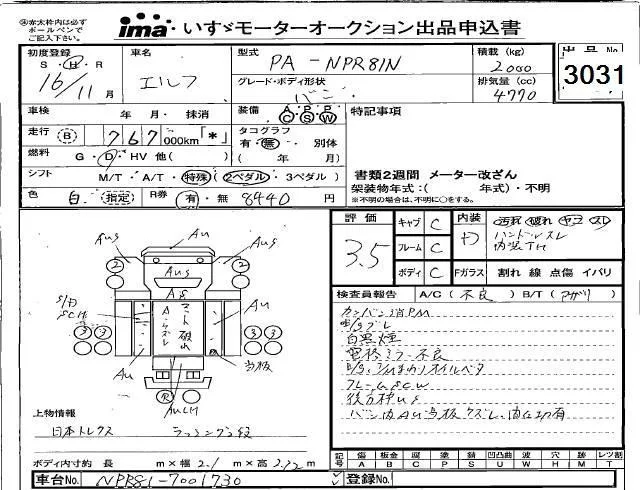 ㊟赤太枠内は必ず
ボールペンで
ご記入下さい。
ima いすゞモーターオークション出品申込書
初度登録 車名 型式 積載 (kg) 出品 No
S・H・R エルフ PA-NPR81N 2000 3031
16/11月 グレード・ボディ形状 排気量 (cc)
バン 4770
車検 年 月・抹消 装備 A P P 特記事項
C S W
走行 B 767 000km「*」 タコグラフ
有・無 別体
燃料 G・D・HV 他( ) ( 年 月)
シフト M/T・A/T・特殊 2ペダル・3ペダル 書類2週間 メーター改ざん
架装物年式:( 年式)・不明
色 白 指定 R券 有・無 8440 円 ※不明の場合は、不明に○をする。
評価 キャブ C 内装 汚れ 破れ ヤコ スレ
3.5 フレーム C D ハンドルスレ
内装TH
ボディ C Fガラス 割れ 線 点傷 イバリ
検査員報告 A/C(不良) B/T(アガリ)
Aug Au Aug
2 2
Aug
AS
S/D Au
SCH
マット破れ
A・ケズレ
3 3 3 3
Au 当板
R AuCH
カンバン消PM
白黒煙
電格ミラー不良
上物情報
日本トレクス ラッシング2段
ボディ内寸約 長 m×幅 2.1 m×高 2.22 m
記号 傷 板金 腐 塗 錆 凹凸曲 波 穴 跡 レツ割
A B C P S U W H M T
車台No. NPR81-7001730 登録No.